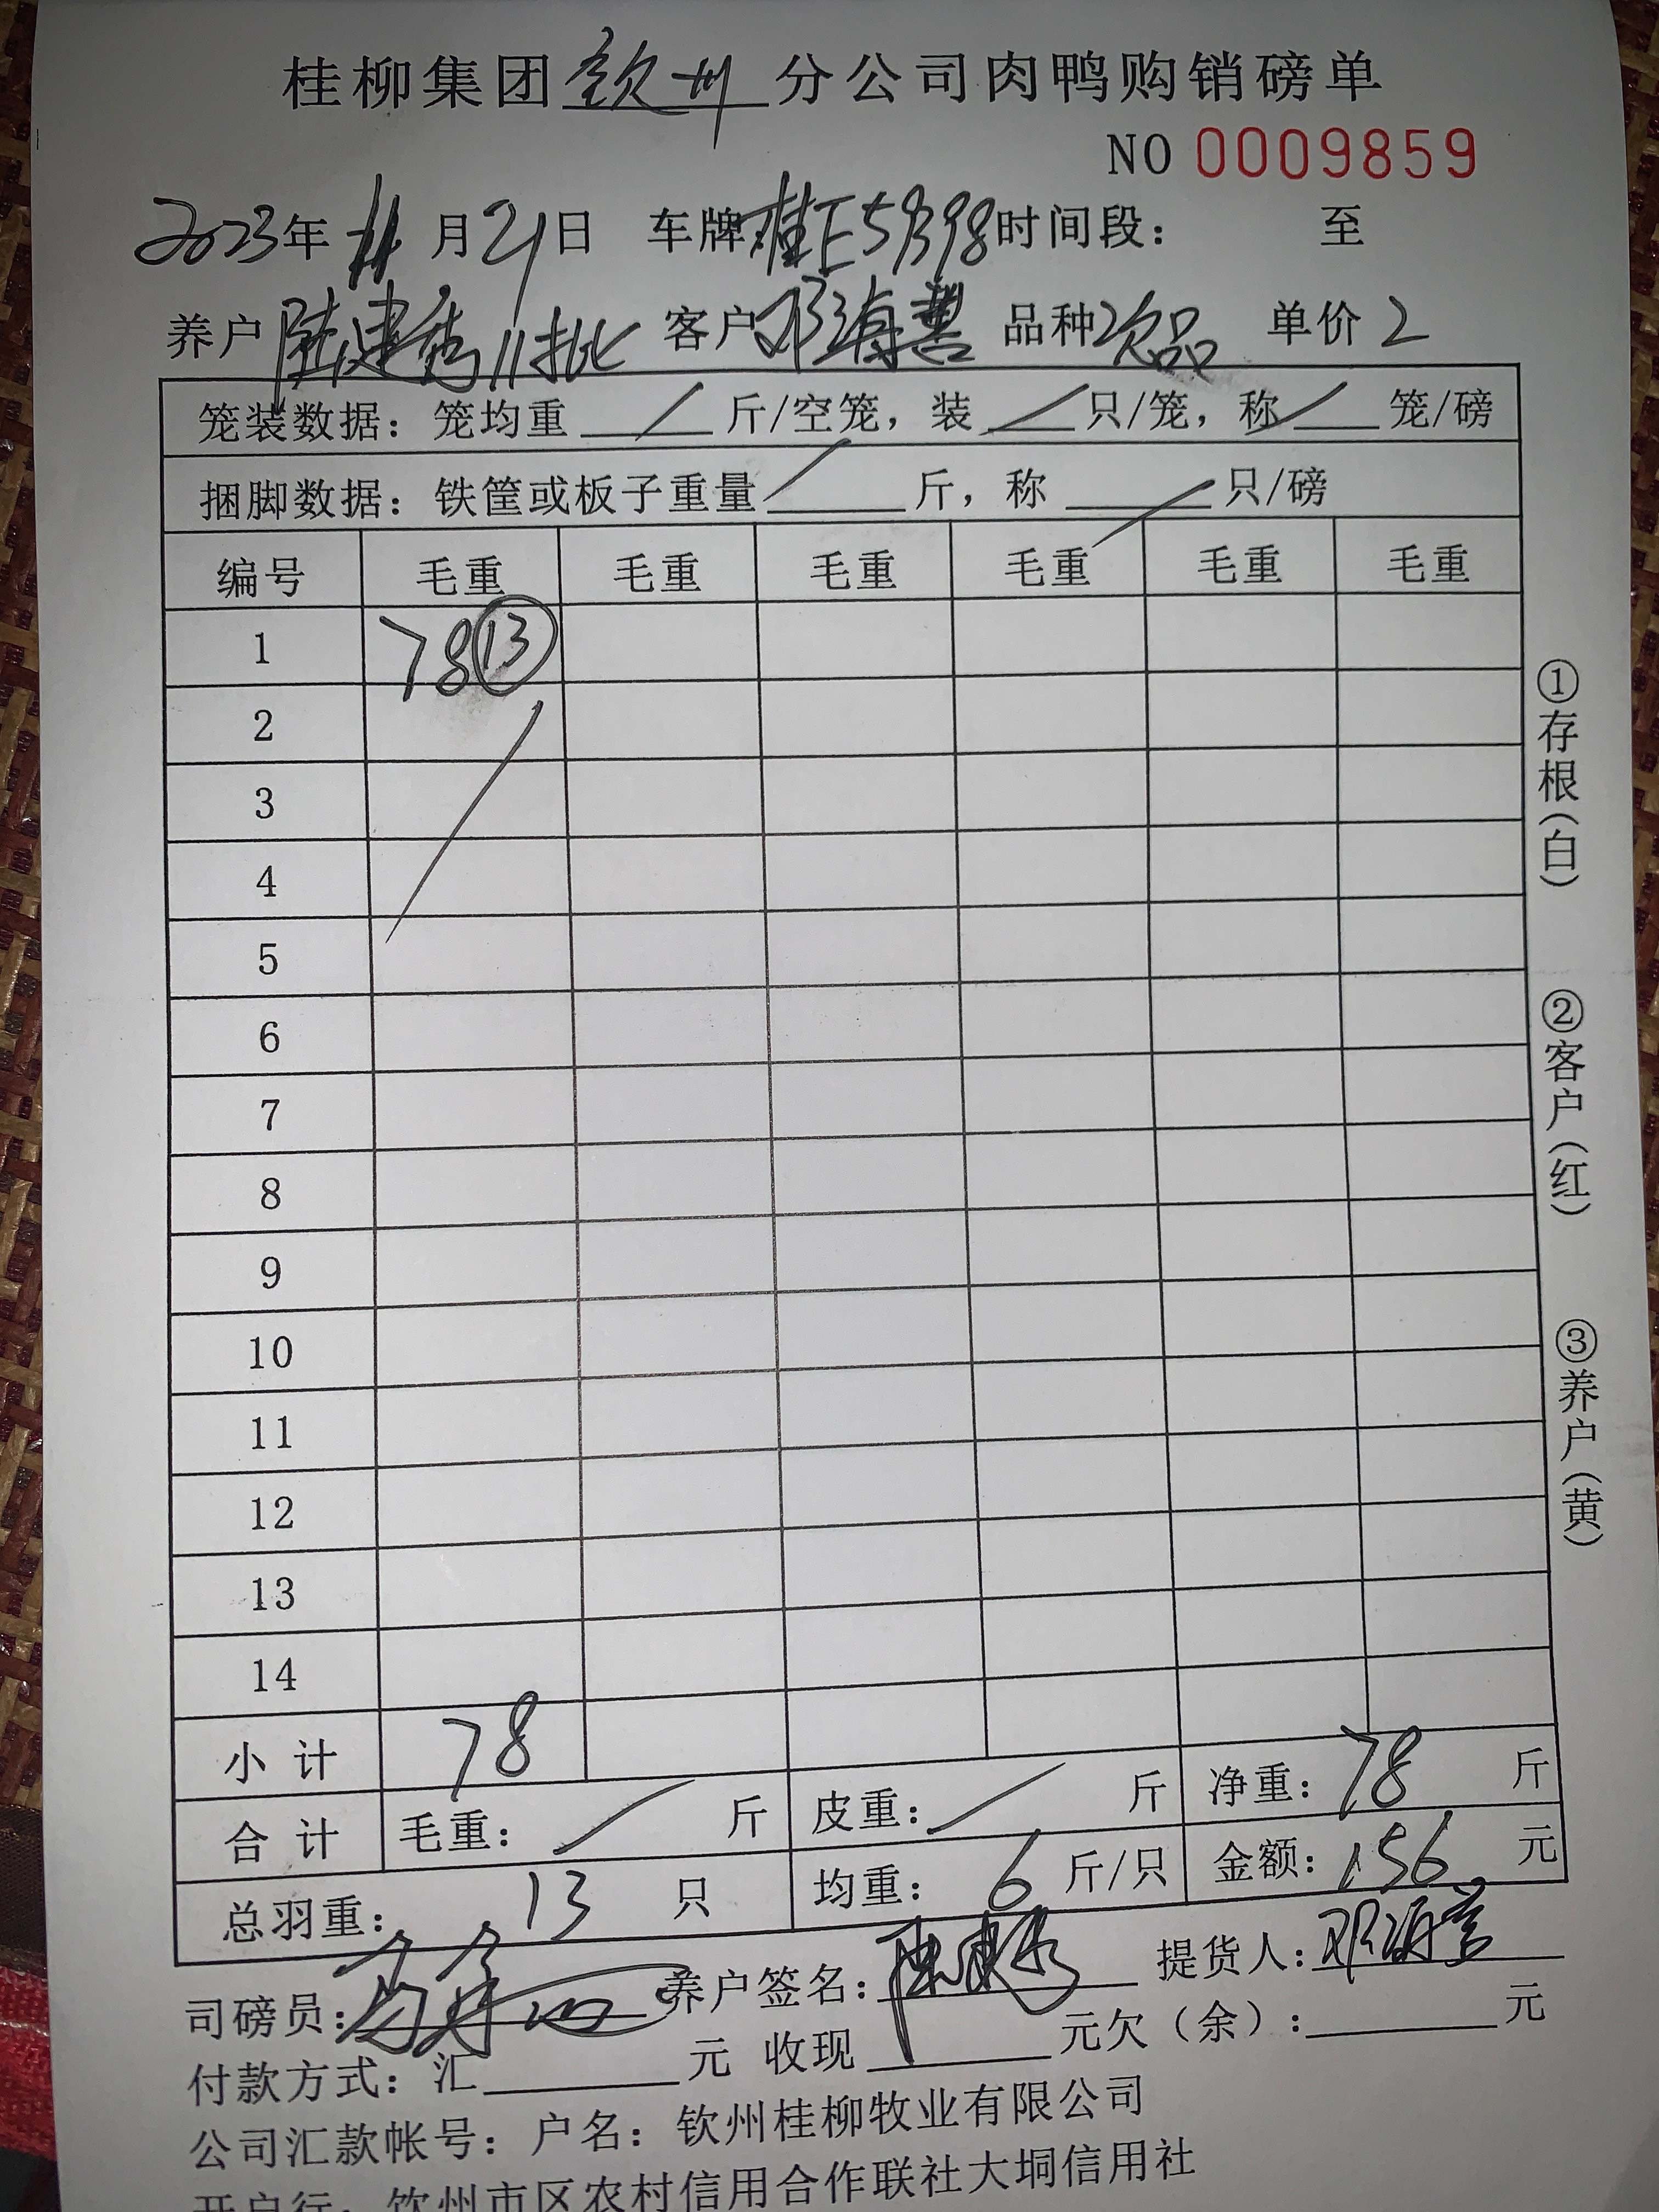 桂柳集团钦州分公司肉鸭购销磅单
NO 0009859
2023年11月21日 车牌:桂E59398时间段: 至
养户陆建秀11批 客户邓海誉 品种次品 单价2
笼装数据:笼均重 / 斤/空笼,装 / 只/笼,称 / 笼/磅
捆脚数据:铁筐或板子重量 / 斤,称 / 只/磅
编号 毛重 毛重 毛重 毛重 毛重 毛重
1 78 ⑬
2
3
4
5
6
7
8
9
10
11
12
13
14
小计 78
合计 毛重: / 斤 皮重: / 斤 净重:78 斤
总羽重: 13 只 均重: 6 斤/只 金额:156 元
司磅员: 养户签名:陆建秀 提货人:邓海誉
付款方式:汇 元 收现 元欠(余): 元
公司汇款帐号:户名:钦州桂柳牧业有限公司
开户行:钦州市区农村信用合作联社大垌信用社
①存根(白)
②客户(红)
③养户(黄)